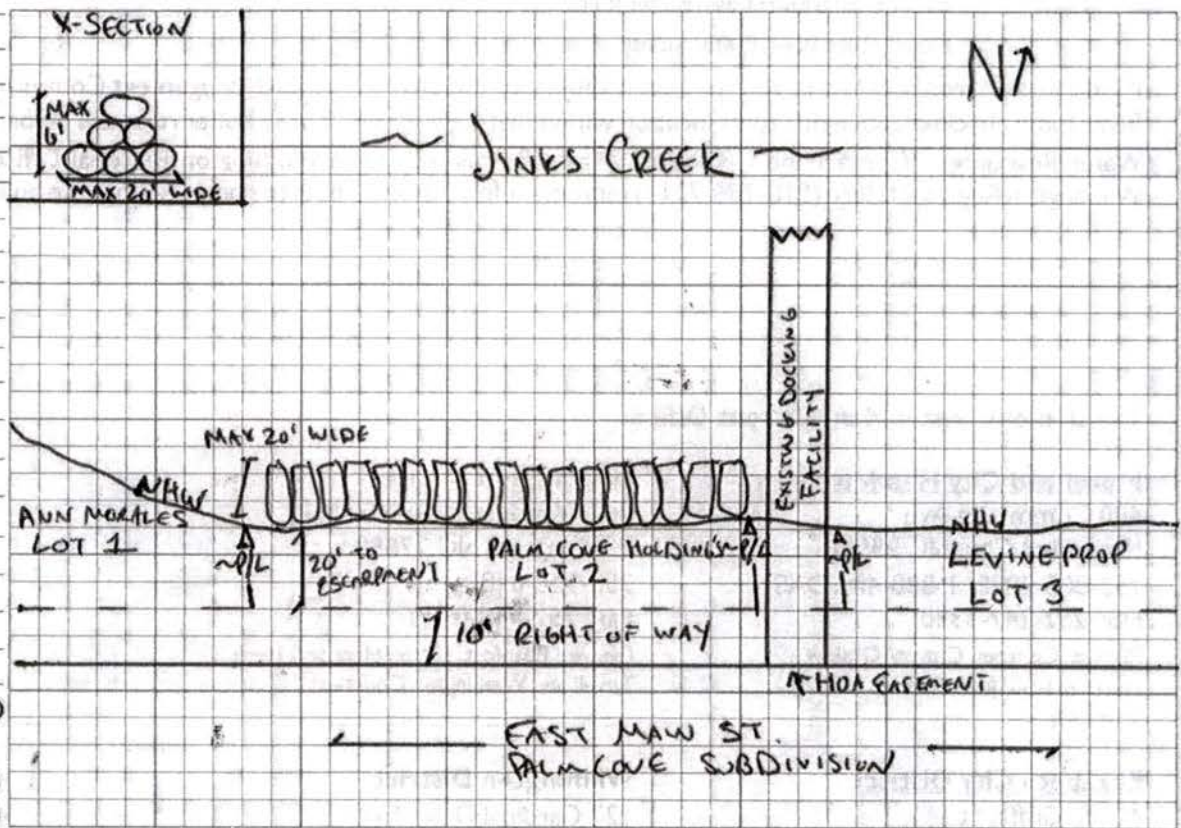 X-SECTION
MAX
6'
MAX 20' WIDE
N
~ JINKS CREEK ~
EXISTING DOCKING
FACILITY
MAX 20' WIDE
NHW
ANN MORALES
LOT 1
~P/L
20' TO
ESCARPMENT
PALM COVE HOLDINGS
LOT 2
~P/L
~P/L
NHW
LEVINE PROP
LOT 3
10' RIGHT OF WAY
HOA EASEMENT
EAST MAIN ST.
PALM COVE SUBDIVISION